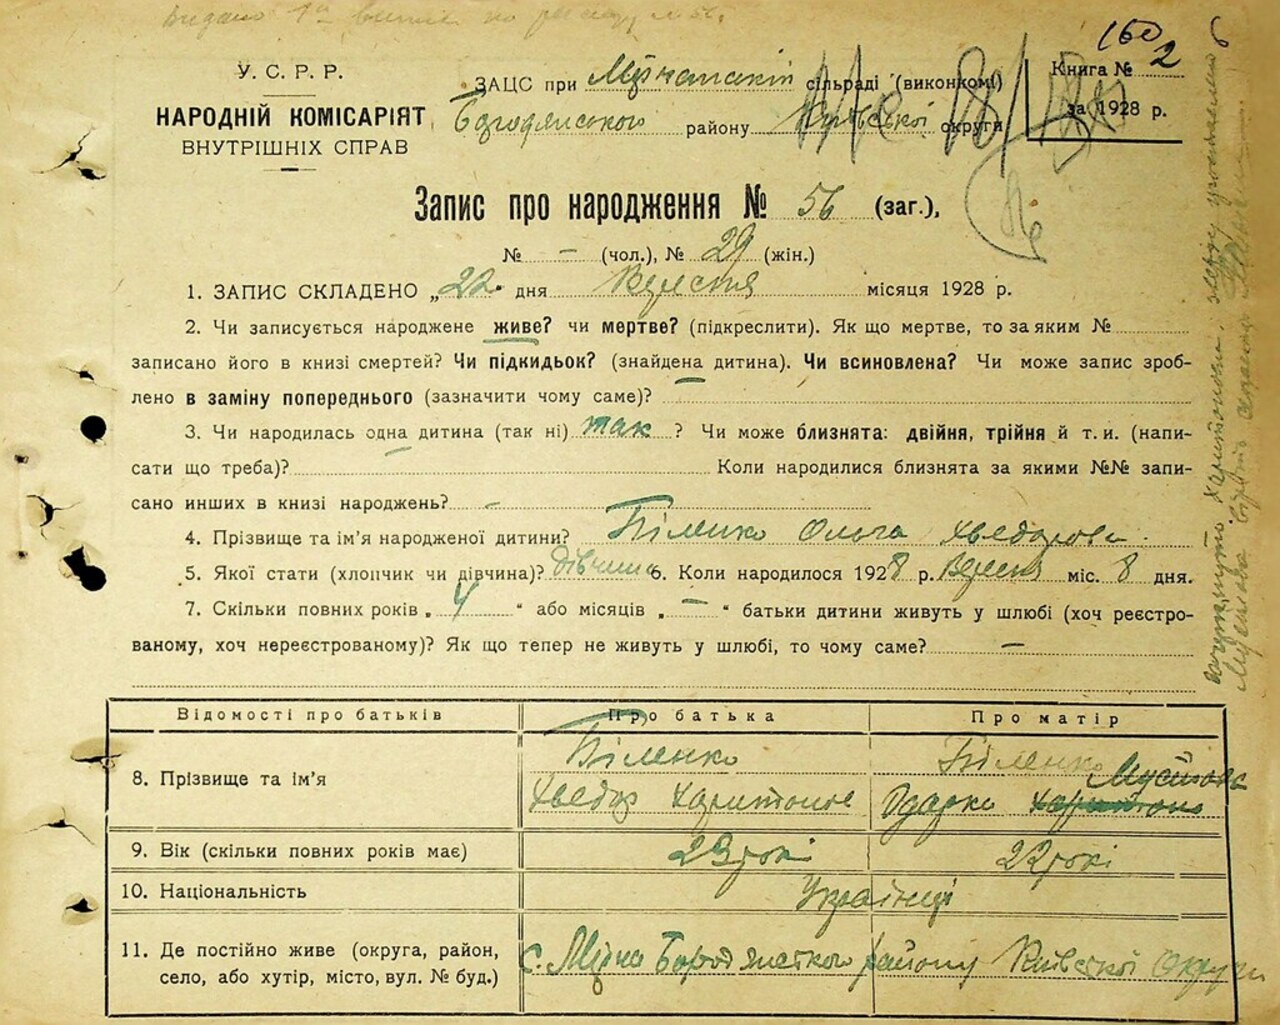 Видано
160
2
У. С. Р. Р.
НАРОДНІЙ КОМІСАРІЯТ
ВНУТРІШНІХ СПРАВ
ЗАЦС при сільраді (виконкомі)
Бородянського району Київської округи
Книга № 2
за 1928 р.
Запис про народження № 56 (заг.),
№ – (чол.), № 29 (жін.)
1. ЗАПИС СКЛАДЕНО „22" дня Вересня місяця 1928 р.
2. Чи записується народжене живе? чи мертве? (підкреслити). Як що мертве, то за яким №
записано його в книзі смертей? Чи підкидьок? (знайдена дитина). Чи всиновлена? Чи може запис зроб-
лено в заміну попереднього (зазначити чому саме)?
3. Чи народилась одна дитина (так ні) так ? Чи може близнята: двійня, трійня й т. и. (напи-
сати що треба)? Коли народилися близнята за якими №№ запи-
сано инших в книзі народжень? –
4. Прізвище та ім'я народженої дитини? Біленко Ольга Хведорова
5. Якої стати (хлопчик чи дівчина)? дівчина 6. Коли народилося 1928 р. Вересня міс. 8 дня.
7. Скільки повних років „ 4 " або місяців „ – " батьки дитини живуть у шлюбі (хоч реєстро-
ваному, хоч нереєстрованому)? Як що тепер не живуть у шлюбі, то чому саме? –
Відомості про батьків Про батька Про матір
8. Прізвище та ім'я Біленко Біленко
Хведор Харитонів Одарка
9. Вік (скільки повних років має) 23 роки 22 роки
10. Національність Українці
11. Де постійно живе (округа, район,
село, або хутір, місто, вул. № буд.)
с. Бородянського району Київської Округи